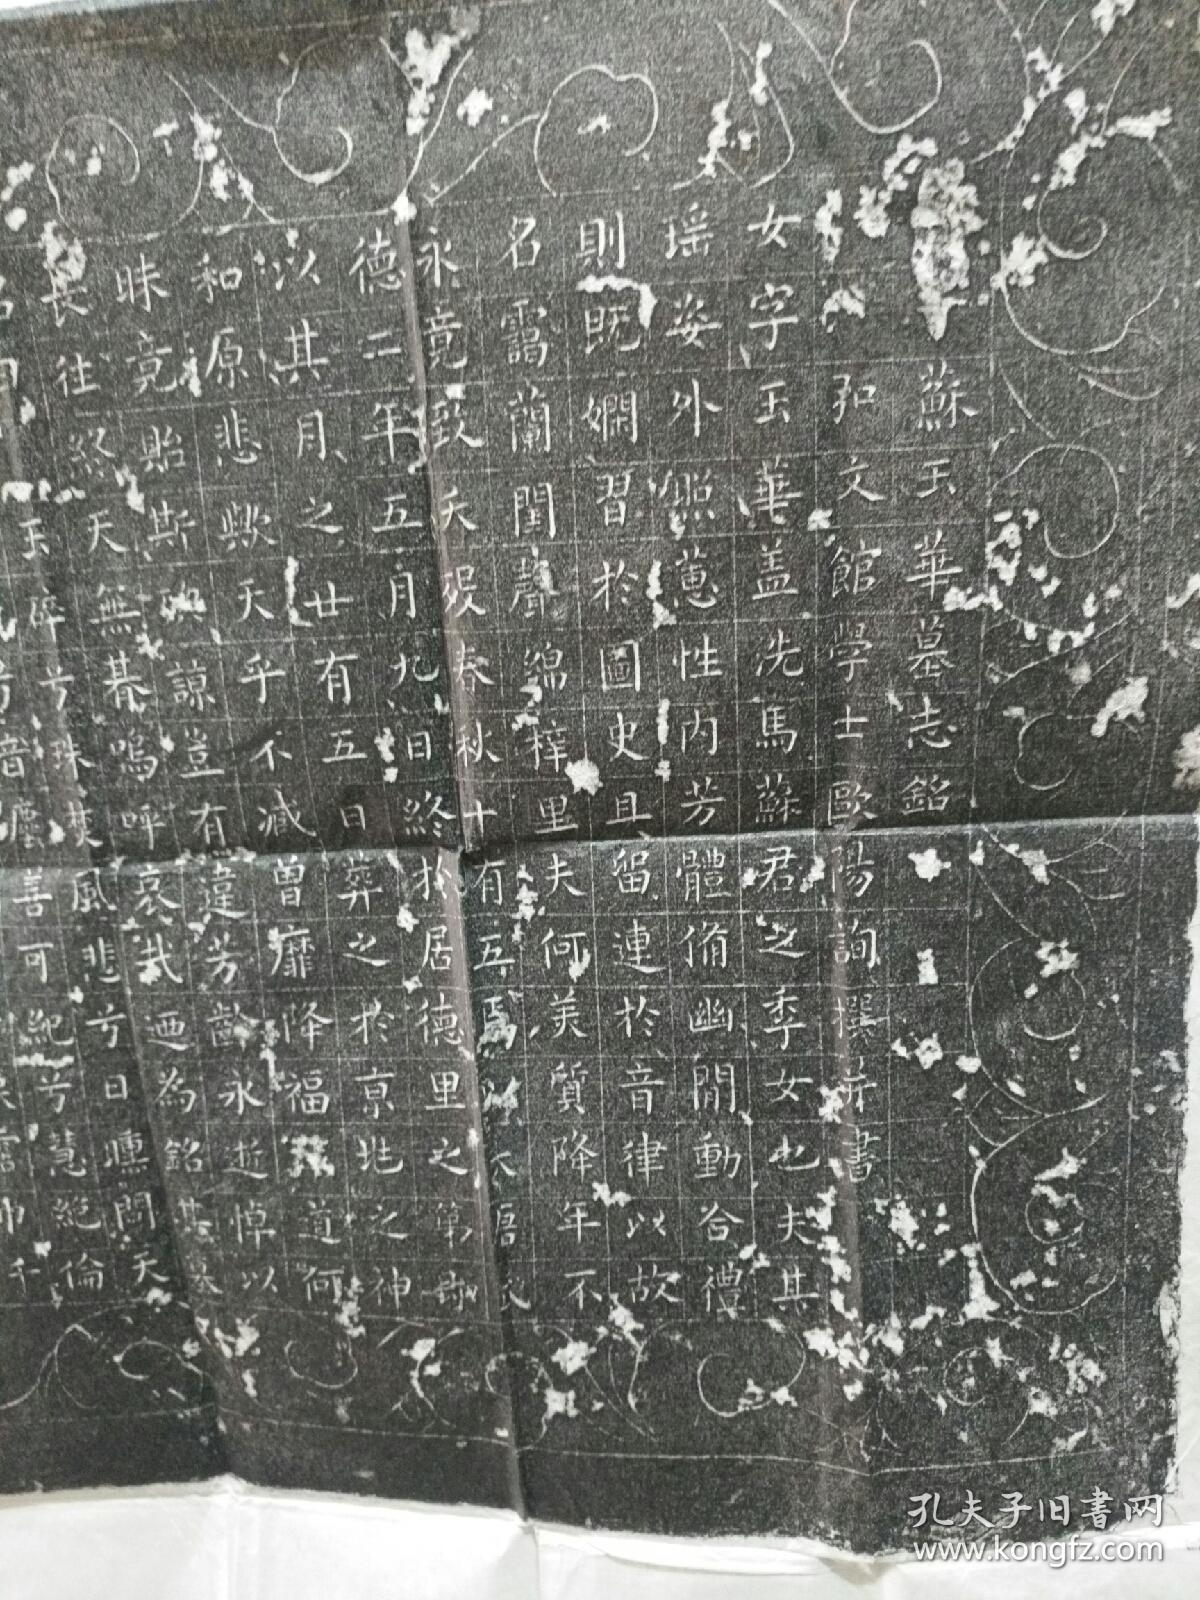 蘇玉華墓志銘
弘文館學士歐陽詢撰并書
女字玉華盖洗馬蘇君之季女也夫其
瑶姿外照蕙性内芳體脩幽閒動合禮
則既嫻習於圖史且留連於音律以故
名靄蘭閨聲綿梓里夫何美質降年不
永竟致夭殁春秋十有五以大唐武
德二年五月九日終於居德里之第
以其月之廿有五日葬之於京兆之神
和原悲歟天乎不減曽靡降福道何
昧竟貽斯諒豈有違芳齡永逝悼以
長往終天無朞嗚呼哀哉迺為銘其墓
玉碎兮珠焚風悲兮日曛問天
兮音塵善可紀兮慧絶倫
千
孔夫子旧書网
www.kongfz.com